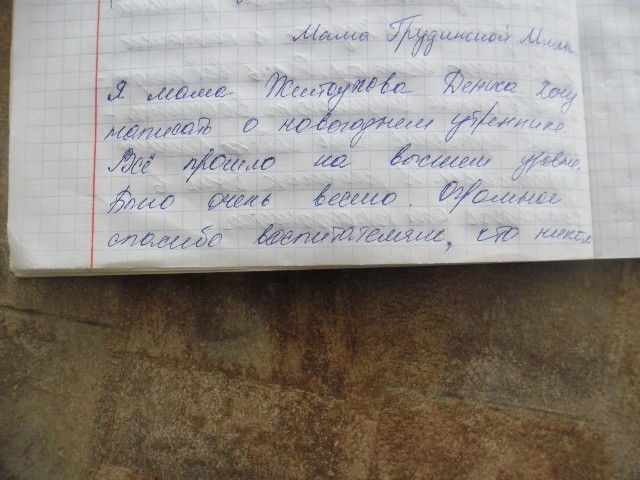 Мама Грудинской Милы
Я мама Житоукова Дениса хочу
написать о новогоднем утреннике
Всё прошло на высшем уровне.
Было очень весело. Огромное
спасибо воспитателям, что